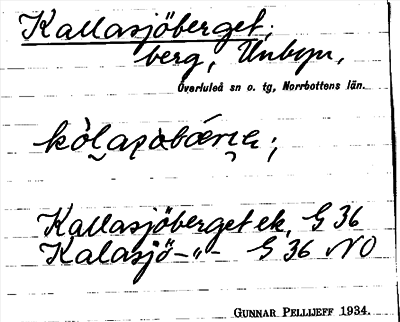 Kallasjöberget;
berg, Unbyn,
Överluleå sn o. tg, Norrbottens län.
Kallasjöberget ek. G 36
Kalasjö-"- G 36 NO
GUNNAR PELLIJEFF 1934.